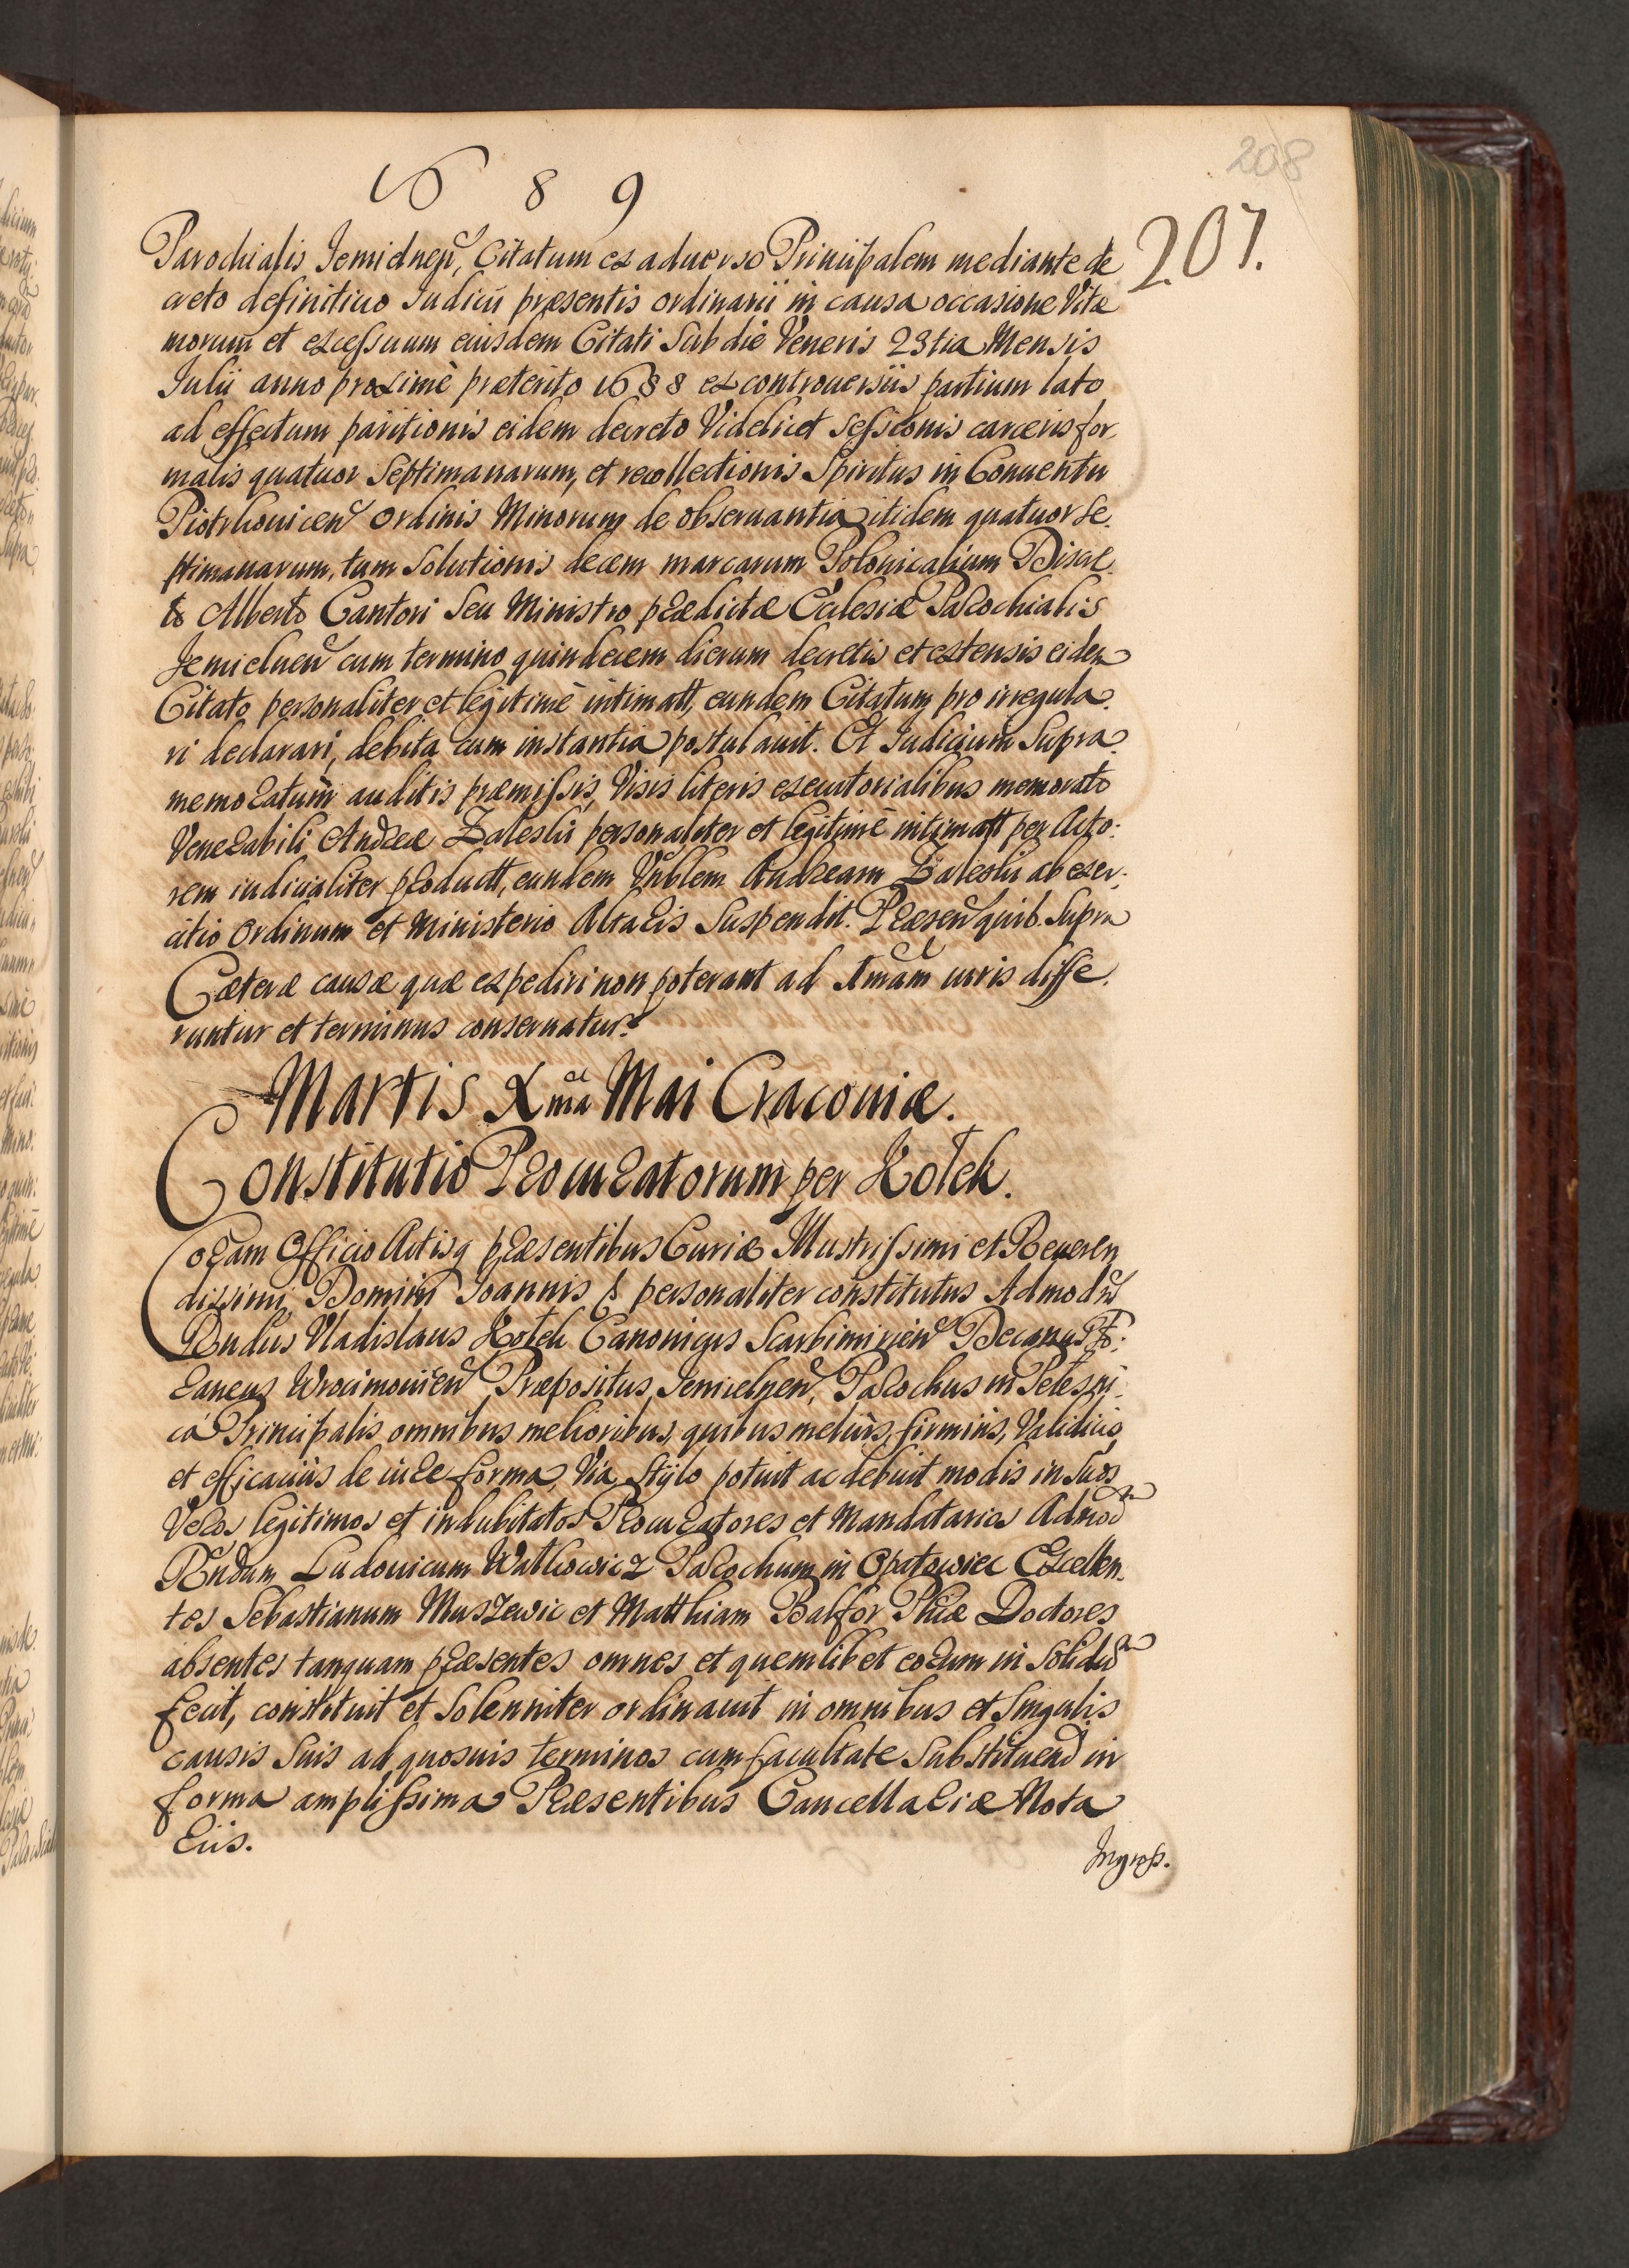 208
1689
207.
Parochialis Jemielnen, Citatum ex aduerso Principalem mediante de
creto definitiuo Iudicii præsentis ordinarii in causa occasione Vitæ
morum et excessuum eiusdem Citati Sub die Veneris 23tia Mensis
Iulii anno proximè præterito 1688 ex controuersiis partium lato
ad effectum paritionis eidem decreto Videlicet sessionis carceris for
malis quatuor Septimanarum, et recollectionis Spiritus in Conuentu
Piotrkouicen Ordinis Minorum de obseruantia itidem quatuor Se
ptimanarum, tum Solutionis decem marcarum Polonicalium Discre
to Alberto Cantori Seu Ministro prædictæ Ecclesiæ Parochialis
Jemielnen cum termino quindecem dierum decretis et extensis eidem
Citato personaliter et legitimè intimatt, eundem Citatum pro irregula
ri declarari, debita cum instantia postulauit. Et Iudicium Supra
memoratum auditis præmissis, Visis literis executorialibus memorato
Venerabili Andreæ Zaleski personaliter et legitimè intimatt per Acto:
rem iudicialiter productt, eundem Vnblem Andream Zaleski ab exer:
citio Ordinum et Ministerio Altaris Suspendit. Præsen quib. Supra
Cæteræ causæ quæ expediri non poterant ad Xmam iuris diffe
runtur et terminus conseruatur.
Martis Xma Mai Cracouiæ.
Constitutio Procuratorum per Kotek.
Coram Officio Actisq præsentibus Curiæ Illustrissimi et Reueren
dissimi Domini Ioannis personaliter constitutus Admodu
Rndus Vladislaus Kotek Canonicus Scarbimirien Decanus Fo:
raneus Wrocimouien Præpositus Jemielnen, Parochus in Petesni
cá Principalis omnibus melioribus, quibus meliùs, firmiùs, Validiùs,
et efficaciùs de iure forma, Via, Stylo potuit ac debuit modis in Suos
Veros legitimos et indubitatos Procuratores et Mandatarios Admod
Rndum Ludouicum Watkowicz Parochum in Opatowiec Excellen
tes Sebastianum Muszewic et Matthiam Balfor Phiæ Doctores
absentes tanquam præsentes omnes et quemlibet eorum in Solidu
fecit, constituit et Solenniter ordinauit in omnibus et Singulis
causis Suis ad quosuis terminos cum facultate Substituend in
forma amplissima Præsentibus Cancellariæ Nota
riis.
Ingross.